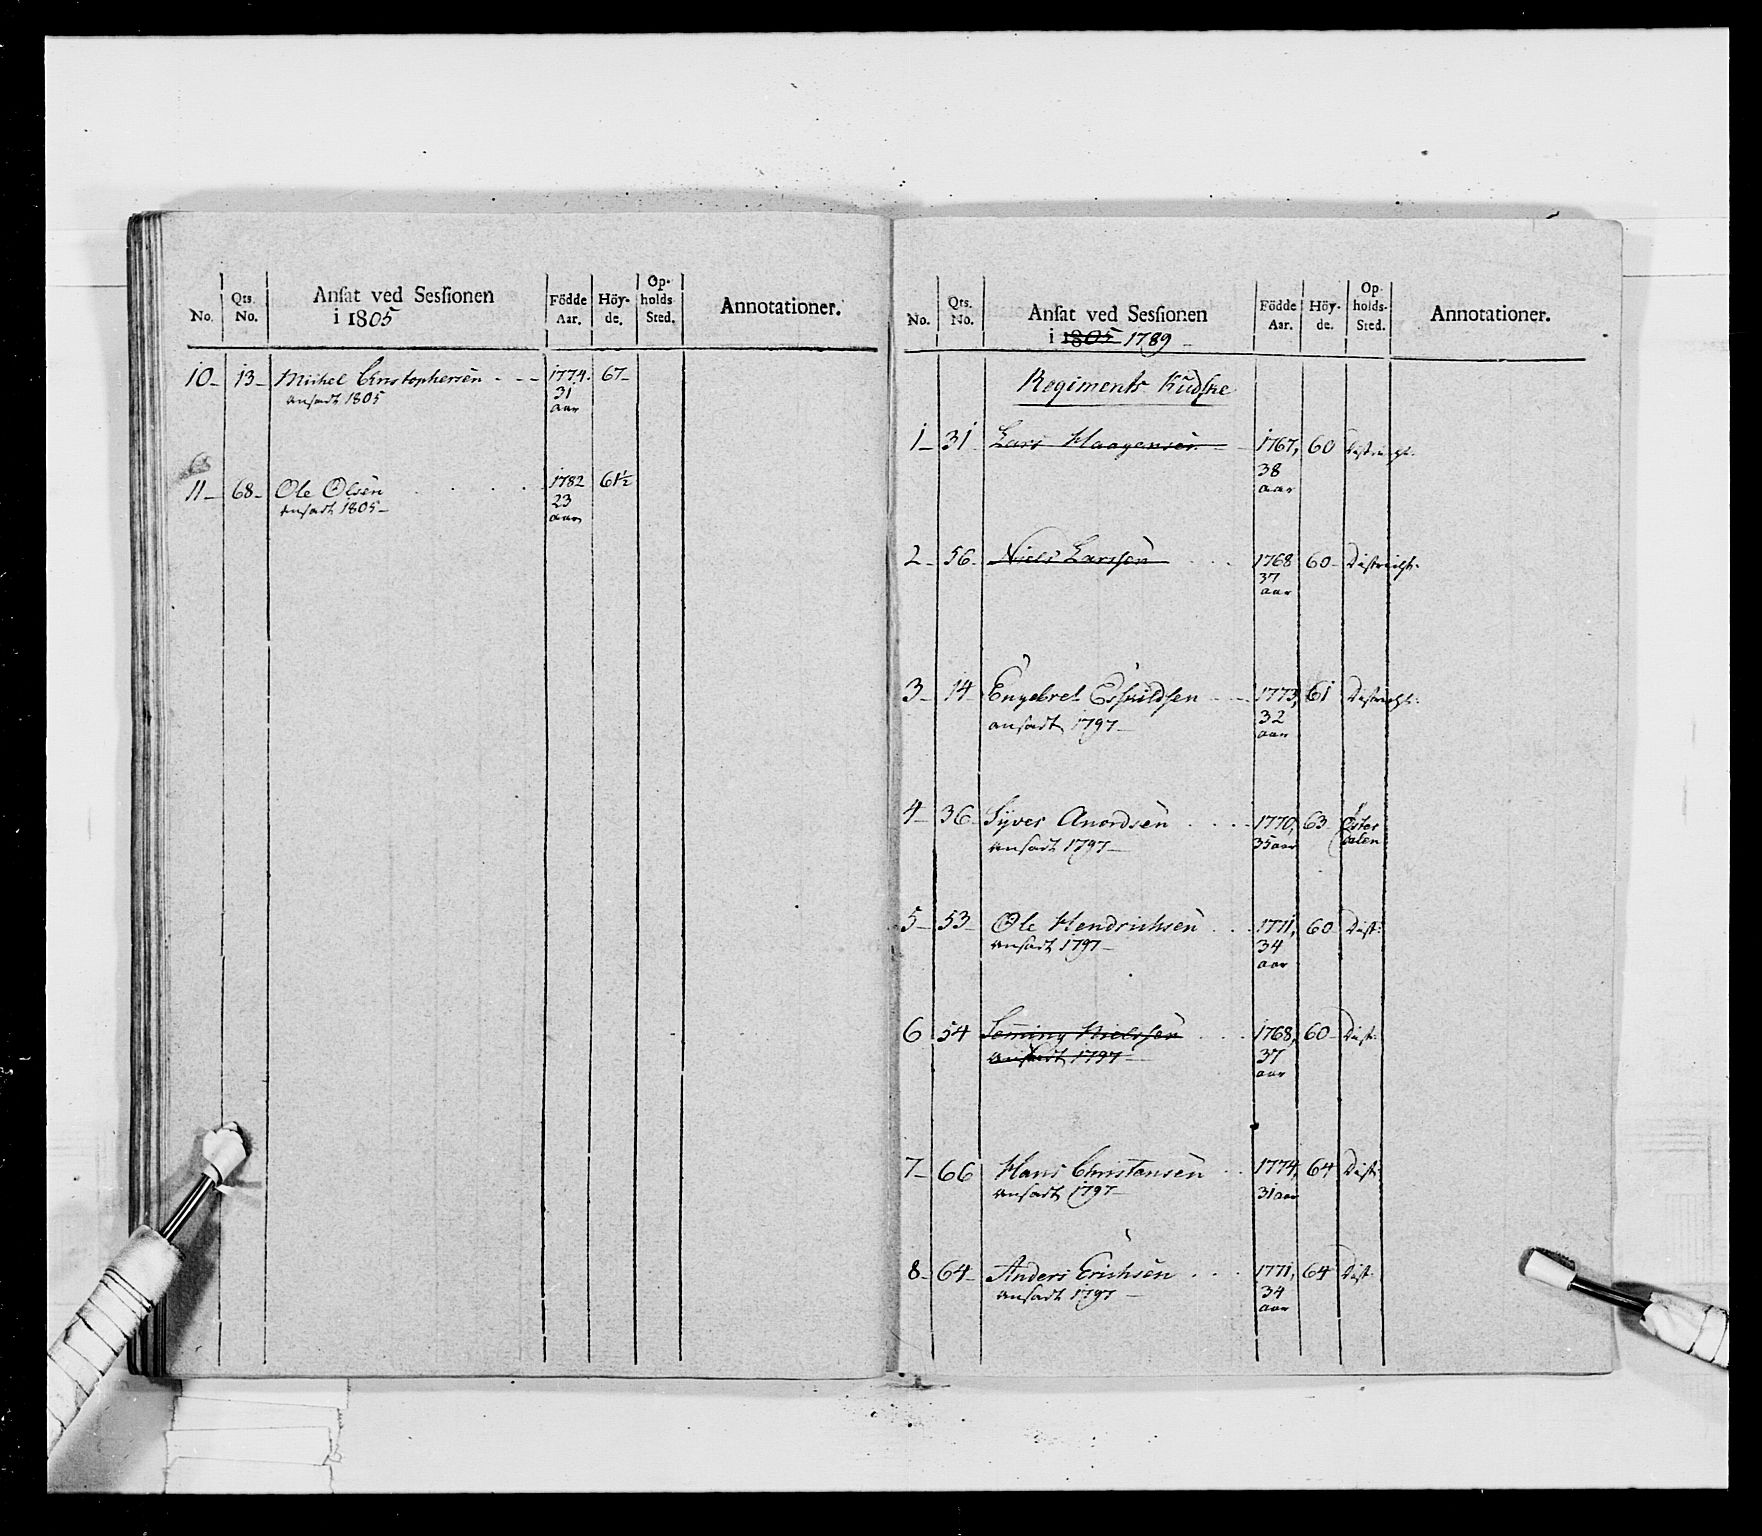 No.
Qts. No.
Ansat ved Sessionen
i 1805
Födde Aar.
Höy-de.
Op-holds Sted.
Annotationer.
10 - 13 - Michel Christophersen - - - 1774. 67 -
ansadt 1805 31
aar
11 - 68 - Ole Olsen . . . . 1782 61½
ansadt 1805 - 23
aar
No.
Qts. No.
Ansat ved Sessionen
i 1805 1789 -
Födde Aar.
Höy-de.
Op-holds-Sted.
Annotationer.
Regiments Kudske
1 - 31 Lars Haagensen - 1767, 60 Distright.
38
aar
2 - 56 - Niels Larssen . . . 1768 60 - Distright.
37
aar
3 - 14 Engebret Eskildsen - - 1773, 61 Distright.
ansadt 1797 - 32
aar
4 - 36 - Syver Anordsen . . . - 1770, 63 Öster
ansadt 1797 - 35 aar dalen
5 - 53 - Ole Hendrichsen . . . 1771, 60 Dist:
ansadt 1797 - 34
aar
6 54 Nielssen . . . 1768, 60 - Dist:
ansadt 1797 - 37
aar
7 - 66 Hans Christansen . . 1774, 64 Dist:
ansadt 1797 - 31 aar
8 - 64 - Anders Erichsen . . . 1771, 64 Dist.
ansadt 1797 - 34
aar